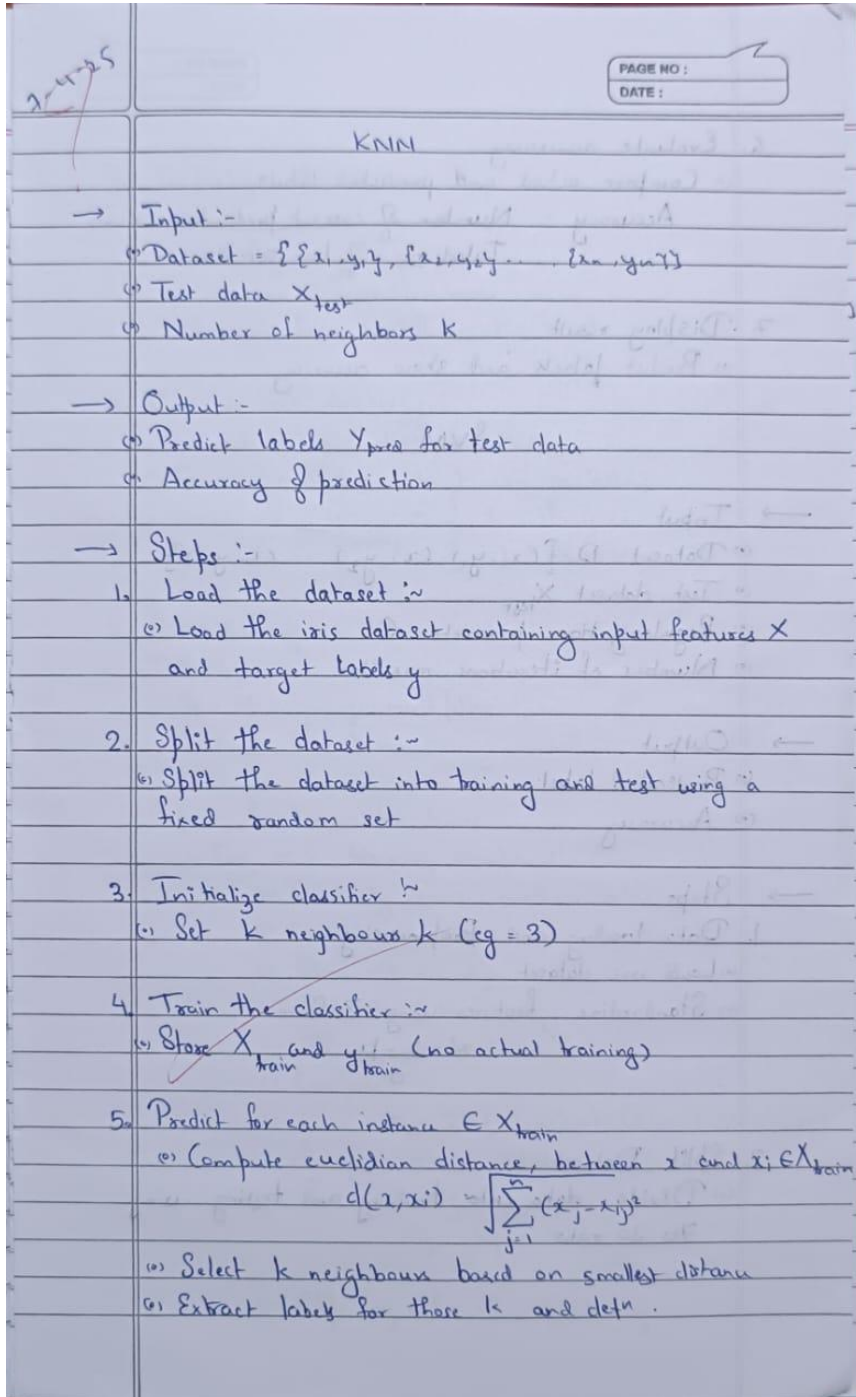 2-4-25
PAGE NO :
DATE :
KNN
→ Input :-
Dataset = {{x₁, y₁}, {x₂, y₂} .... {xₙ, yₙ}}
Test data X_test
Number of neighbors K
→ Output :-
Predict labels Y_pred for test data
Accuracy of prediction
→ Steps :-
1. Load the dataset :~
Load the iris dataset containing input features X
and target labels y
2. Split the dataset :~
Split the dataset into training and test using a
fixed random set
3. Initialize classifier :~
Set k neighbours k (eg = 3)
4. Train the classifier :~
Store X_train and y_train (no actual training)
5. Predict for each instance ∈ X_train
Compute euclidian distance, between x and xᵢ ∈ X_train
d(x, xᵢ) = √∑ⁿⱼ₌₁ (xⱼ - xᵢⱼ)²
Select k neighbours based on smallest distance
Extract labels for those k and detn.